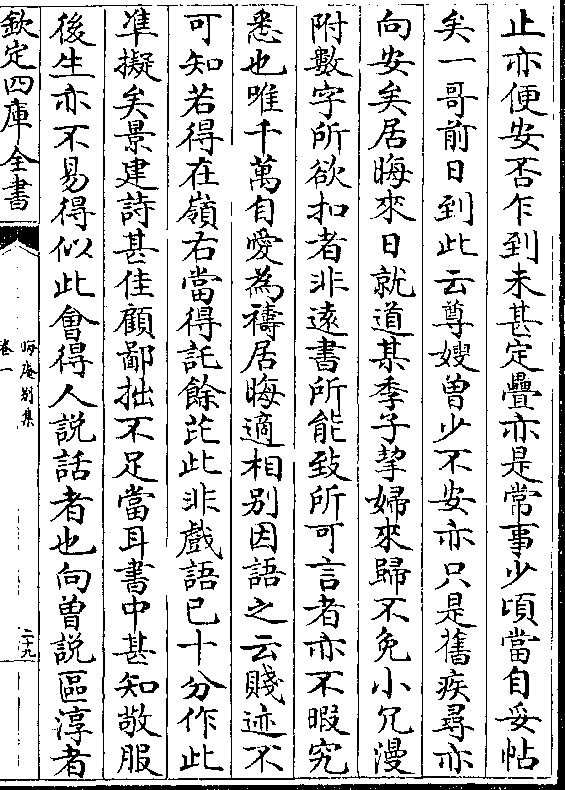 止亦便安否乍到未甚定疊亦是常事少頃當自妥帖
矣一哥前日到此云尊嫂曾少不安亦只是舊疾尋亦
向安矣居晦來日就道某季子挈婦來歸不免小冗漫
附數字所欲扣者非遠書所能致所可言者亦不暇究
悉也唯千萬自愛為禱居晦適相别因語之云賤迹不
可知若得在嶺右當得託餘芘此非戲語已十分作此
准擬矣景建詩甚佳顧鄙拙不足當耳書中甚知敬服
後生亦不易得似此會得人説話者也向曾説區淳者
欽定四庫全書
晦庵别集
卷一
二十九